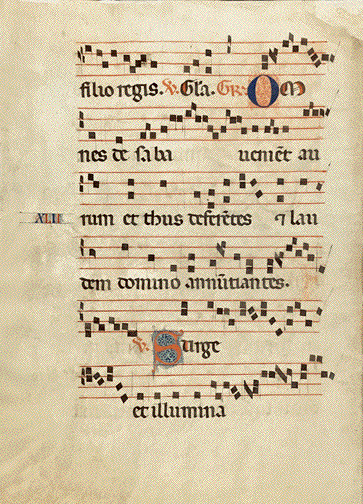 filio regis. V. Gl'a. GR. OM
nes de saba uenient au
XLII rum et thus deferētes ⁊ lau
dem domino annūtiantes.
V. Surge
et illumina